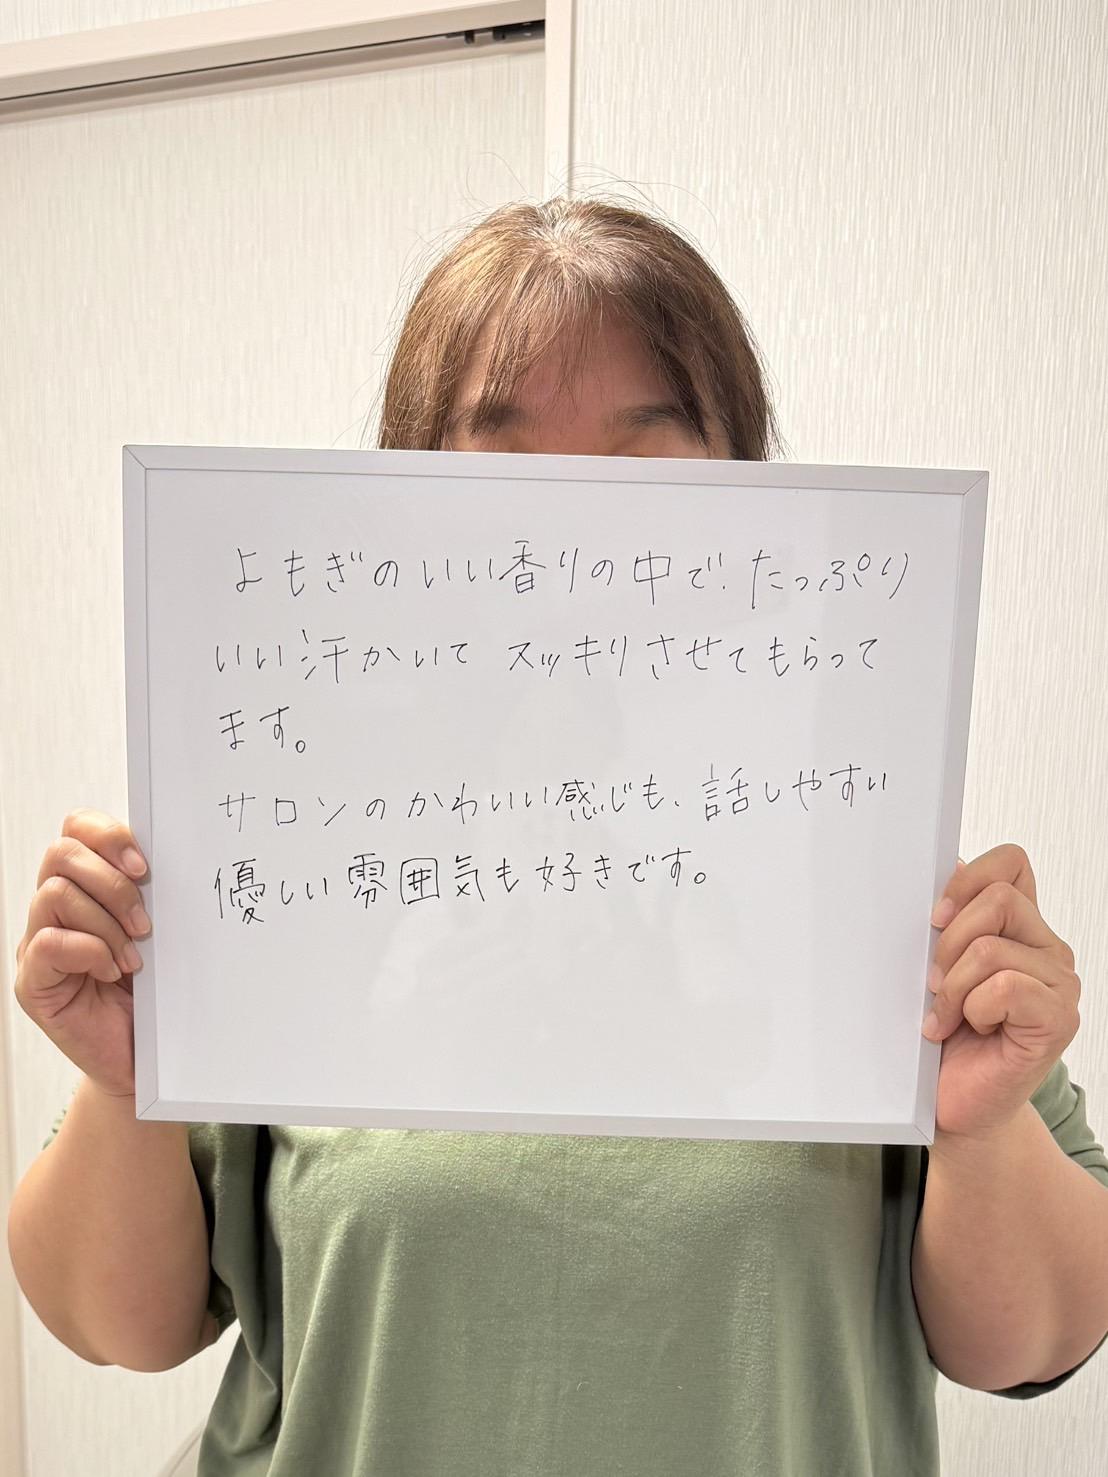 よもぎのいい香りの中で、たっぷり
いい汗かいて スッキリさせてもらって
ます。
サロンのかわいい感じも、話しやすい
優しい雰囲気も好きです。